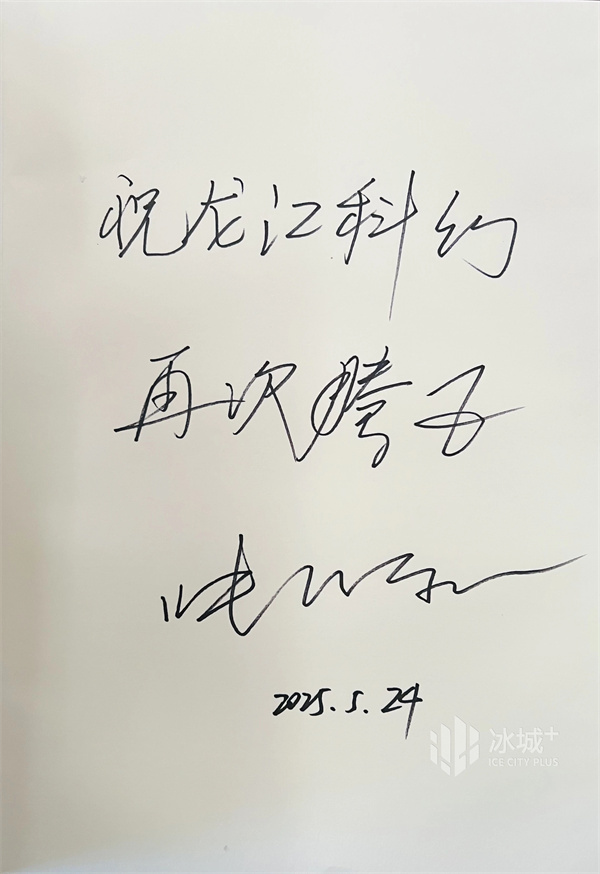 祝龙江科幻
再次腾飞
2025.5.24
冰城+
ICE CITY PLUS